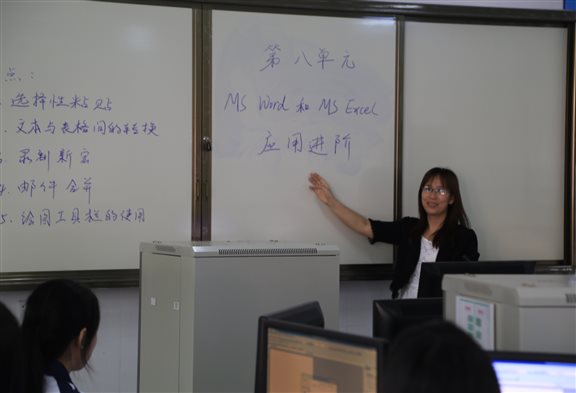 点：
选择性粘贴
文本与表格间的转换
录制新宏
4. 邮件合并
5. 绘图工具栏的使用
第八单元
MS Word 和 MS Excel
应用进阶